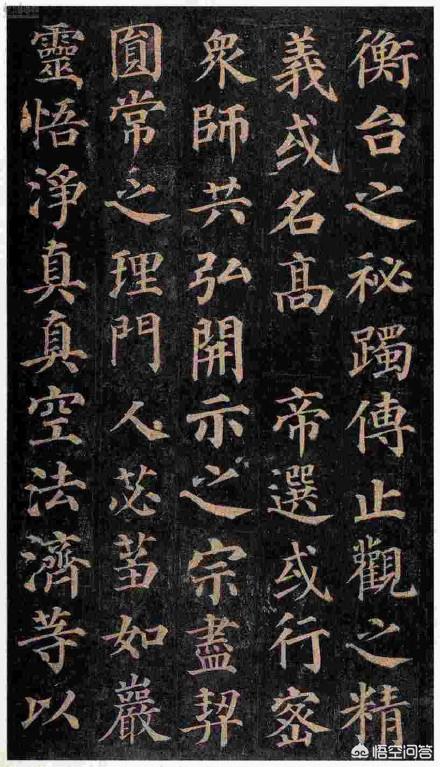 衡台之祕躅傳止觀之精
義或名高 帝選或行密
衆師共弘開示之宗盡契
圓常之理門人苾芻如巖
靈悟淨真真空法濟等以
悟空问答